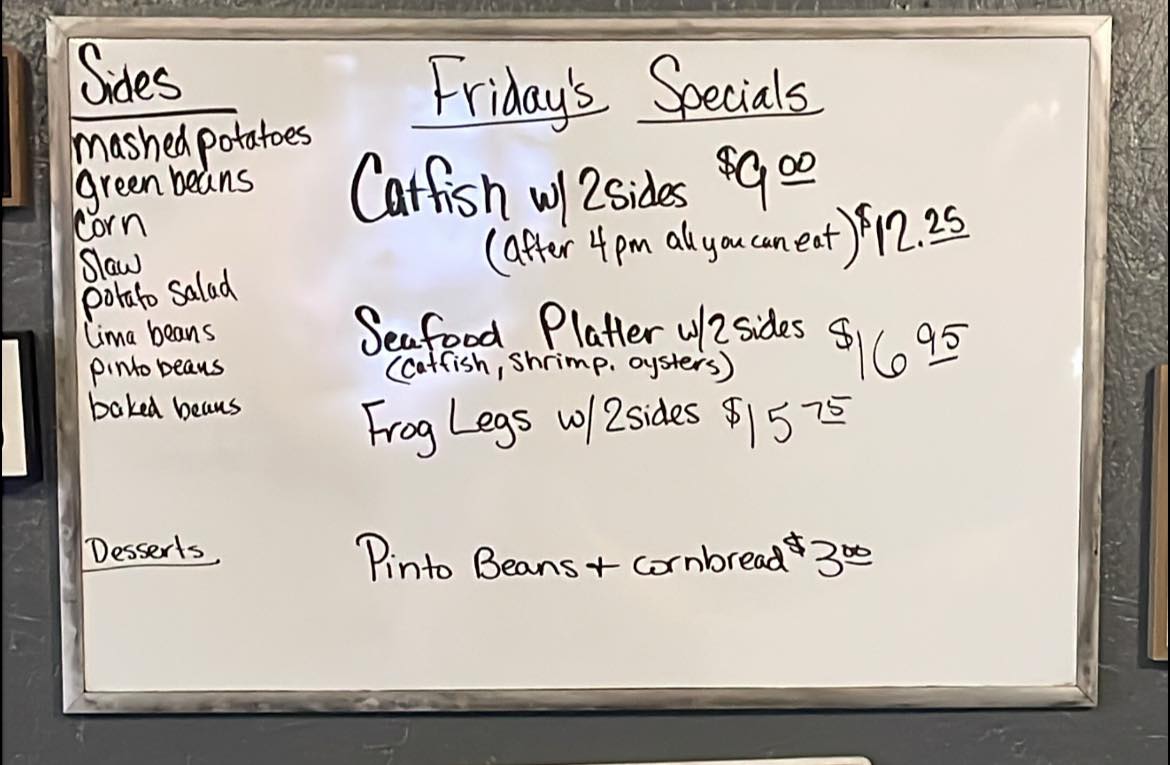 Sides
mashed potatoes
green beans
corn
Slaw
potato salad
Lima beans
pinto beans
baked beans
Desserts
Friday's Specials
Catfish w/ 2 sides $9 00
(after 4 pm all you can eat) $12.25
Seafood Platter w/ 2 sides $16 95
(catfish, shrimp. oysters)
Frog Legs w/ 2 sides $15 75
Pinto Beans + cornbread $3 00